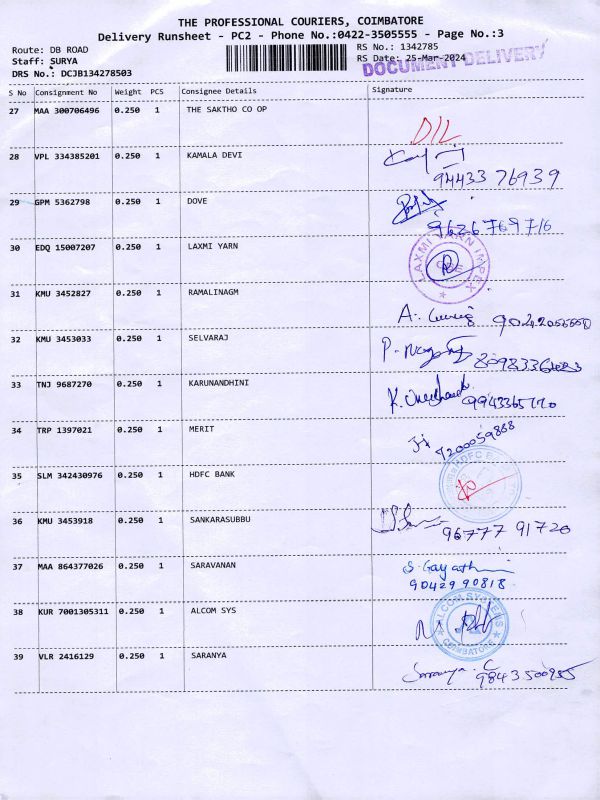 THE PROFESSIONAL COURIERS, COIMBATORE
Delivery Runsheet - PC2 - Phone No.:0422-3505555 - Page No.:3
Route: DB ROAD RS No.: 1342785
Staff: SURYA RS Date: 25-Mar-2024
DRS No.: DCJB134278503 DOCUMENT DELIVERY
S No Consignment No Weight PCS Consignee Details Signature
27 MAA 300706496 0.250 1 THE SAKTHO CO OP
DIL
28 VPL 334385201 0.250 1 KAMALA DEVI
94433 76939
29 GPM 5362798 0.250 1 DOVE
9626769716
30 EDQ 15007207 0.250 1 LAXMI YARN
LAXMI YARN IMPEX
31 KMU 3452827 0.250 1 RAMALINAGM
A.
32 KMU 3453033 0.250 1 SELVARAJ
P.
33 TNJ 9687270 0.250 1 KARUNANDHINI
K.
34 TRP 1397021 0.250 1 MERIT
7200059868
35 SLM 342430976 0.250 1 HDFC BANK
HDFC
36 KMU 3453918 0.250 1 SANKARASUBBU
96777 91720
37 MAA 864377026 0.250 1 SARAVANAN
S. Gayathri
90429 90818
38 KUR 7001305311 0.250 1 ALCOM SYS
ALCOM SYSTEMS
COIMBATORE
39 VLR 2416129 0.250 1 SARANYA
Saranya. C
9843500955